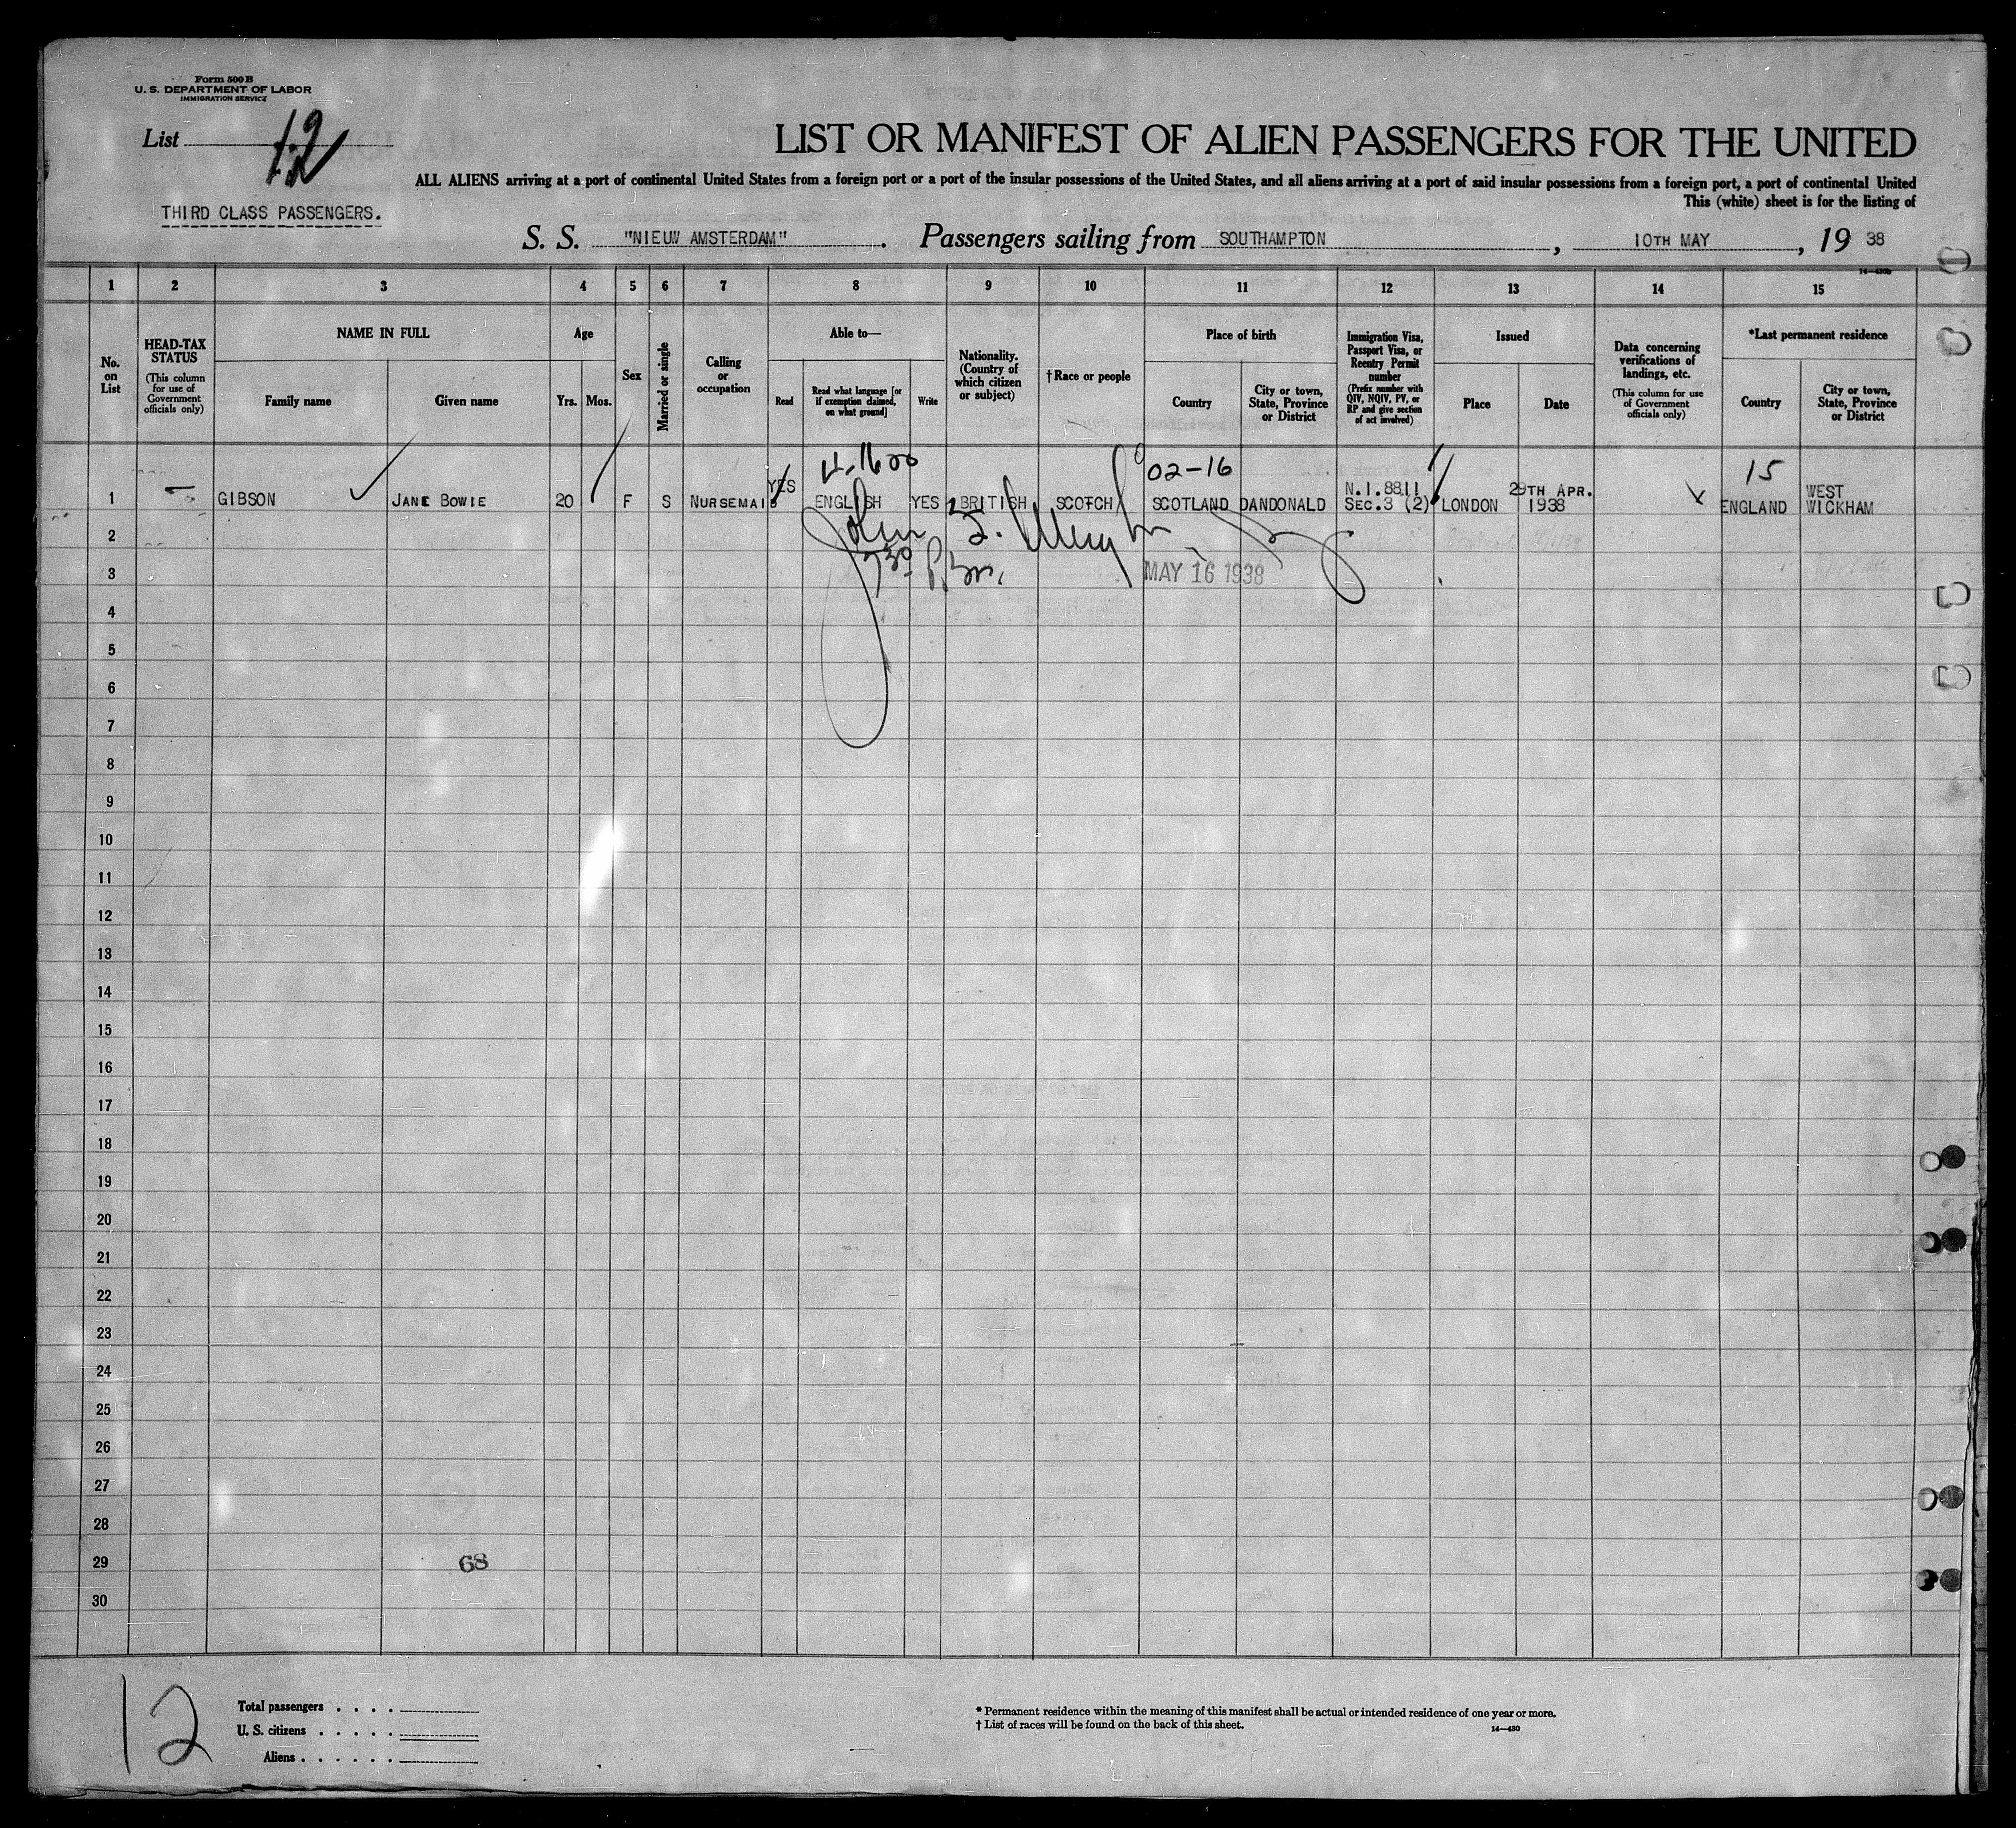 Form 500 B
U. S. DEPARTMENT OF LABOR
IMMIGRATION SERVICE
List 12
LIST OR MANIFEST OF ALIEN PASSENGERS FOR THE UNITED
ALL ALIENS arriving at a port of continental United States from a foreign port or a port of the insular possessions of the United States, and all aliens arriving at a port of said insular possessions from a foreign port, a port of continental United
This (white) sheet is for the listing of
THIRD CLASS PASSENGERS.
S. S. "NIEUW AMSTERDAM". Passengers sailing from SOUTHAMPTON, 10TH MAY, 19 38
14-430b
1 2 3 4 5 6 7 8 9 10 11 12 13 14 15
No. on List
HEAD-TAX STATUS
(This column for use of Government officials only)
NAME IN FULL
Family name
Given name
Age
Yrs.
Mos.
Sex
Married or single
Calling or occupation
Able to—
Read
Read what language [or if exemption claimed, on what ground]
Write
Nationality. (Country of which citizen or subject)
† Race or people
Place of birth
Country
City or town, State, Province or District
Immigration Visa, Passport Visa, or Reentry Permit number
(Prefix number with QIV, NQIV, PV, or RP and give section of act involved)
Issued
Place
Date
Data concerning verifications of landings, etc.
(This column for use of Government officials only)
*Last permanent residence
Country
City or town, State, Province or District
02-16
15
1 GIBSON JANE BOWIE 20 F S NURSEMAID YES ENGLISH YES BRITISH SCOTCH SCOTLAND DANDONALD N.I.8811 SEC.3 (2) LONDON 29TH APR. 1938 ENGLAND WEST WICKHAM
2
John
3
MAY 16 1938
4
5
6
7
8
9
10
11
12
13
14
15
16
17
18
19
20
21
22
23
24
25
26
27
28
29
68
30
12
Total passengers . . . .
U. S. citizens . . . . .
Aliens . . . . . .
* Permanent residence within the meaning of this manifest shall be actual or intended residence of one year or more.
† List of races will be found on the back of this sheet.
14—430